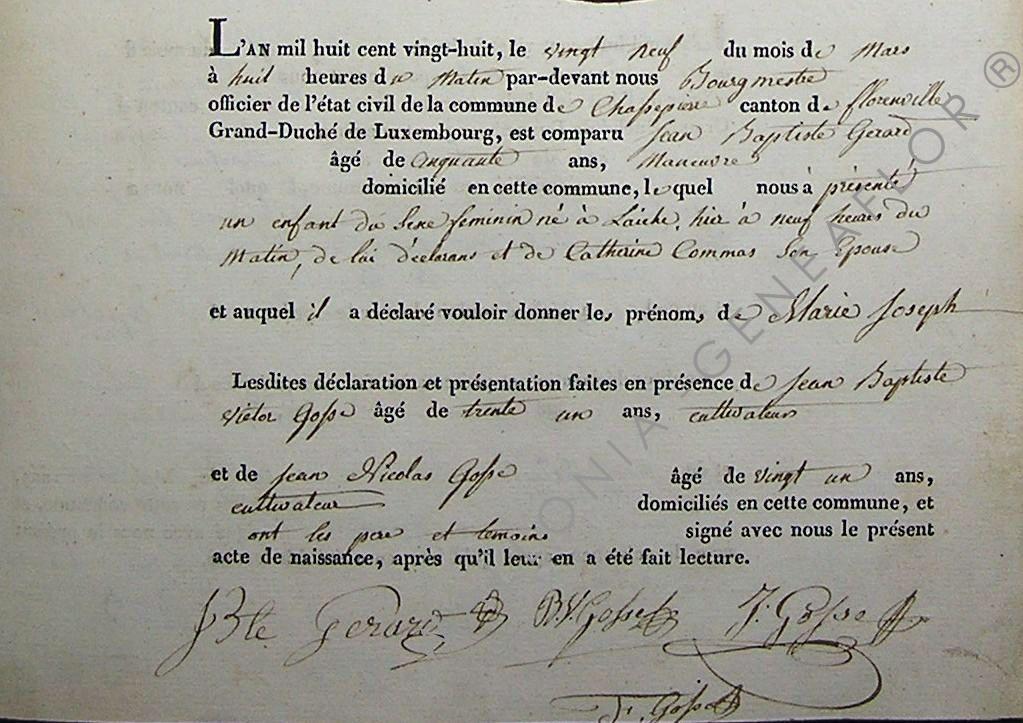 L'AN mil huit cent vingt-huit, le vingt neuf du mois de Mars
à huit heures du Matin par-devant nous Bourgmestre
officier de l'état civil de la commune de Chassepierre canton de florenville
Grand-Duché de Luxembourg, est comparu Jean Baptiste Gerard
âgé de Cinquante ans, Maneuvre
domicilié en cette commune, lequel nous à présenté
un enfant du Sexe feminin né à Laiche, hier à neuf heures du
Matin, de lui déclarans et de Catherine Commas Son Epouse
et auquel il a déclaré vouloir donner les prénoms de Marie Joseph
Lesdites déclaration et présentation faites en présence de Jean Baptiste
Victor Gosse âgé de trente un ans, cultivateur
et de Jean Nicolas Gosse âgé de vingt un ans,
cultivateur domiciliés en cette commune, et
ont les pere et temoins signé avec nous le présent
acte de naissance, après qu'il leur en a été fait lecture.
JBte Gerard B.V. Gosse J. Gosse
Gosse
GENEAFLOR ®